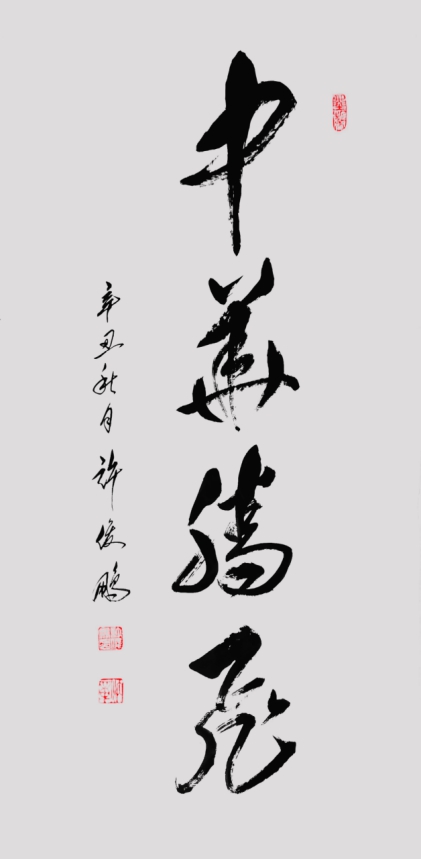 中華騰飛
辛丑秋月 許俊鵬